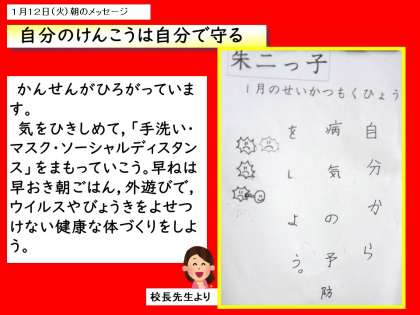 1月12日(火)朝のメッセージ
自分のけんこうは自分で守る
かんせんがひろがっていま
す。
気をひきしめて,「手洗い・
マスク・ソーシャルディスタン
ス」をまもっていこう。早ねは
早おき朝ごはん,外遊びで,
ウイルスやびょうきをよせつ
けない健康な体づくりをしよ
う。
校長先生より
朱二っ子
1月のせいかつもくひょう
自分から
病気の予防
をしよう。